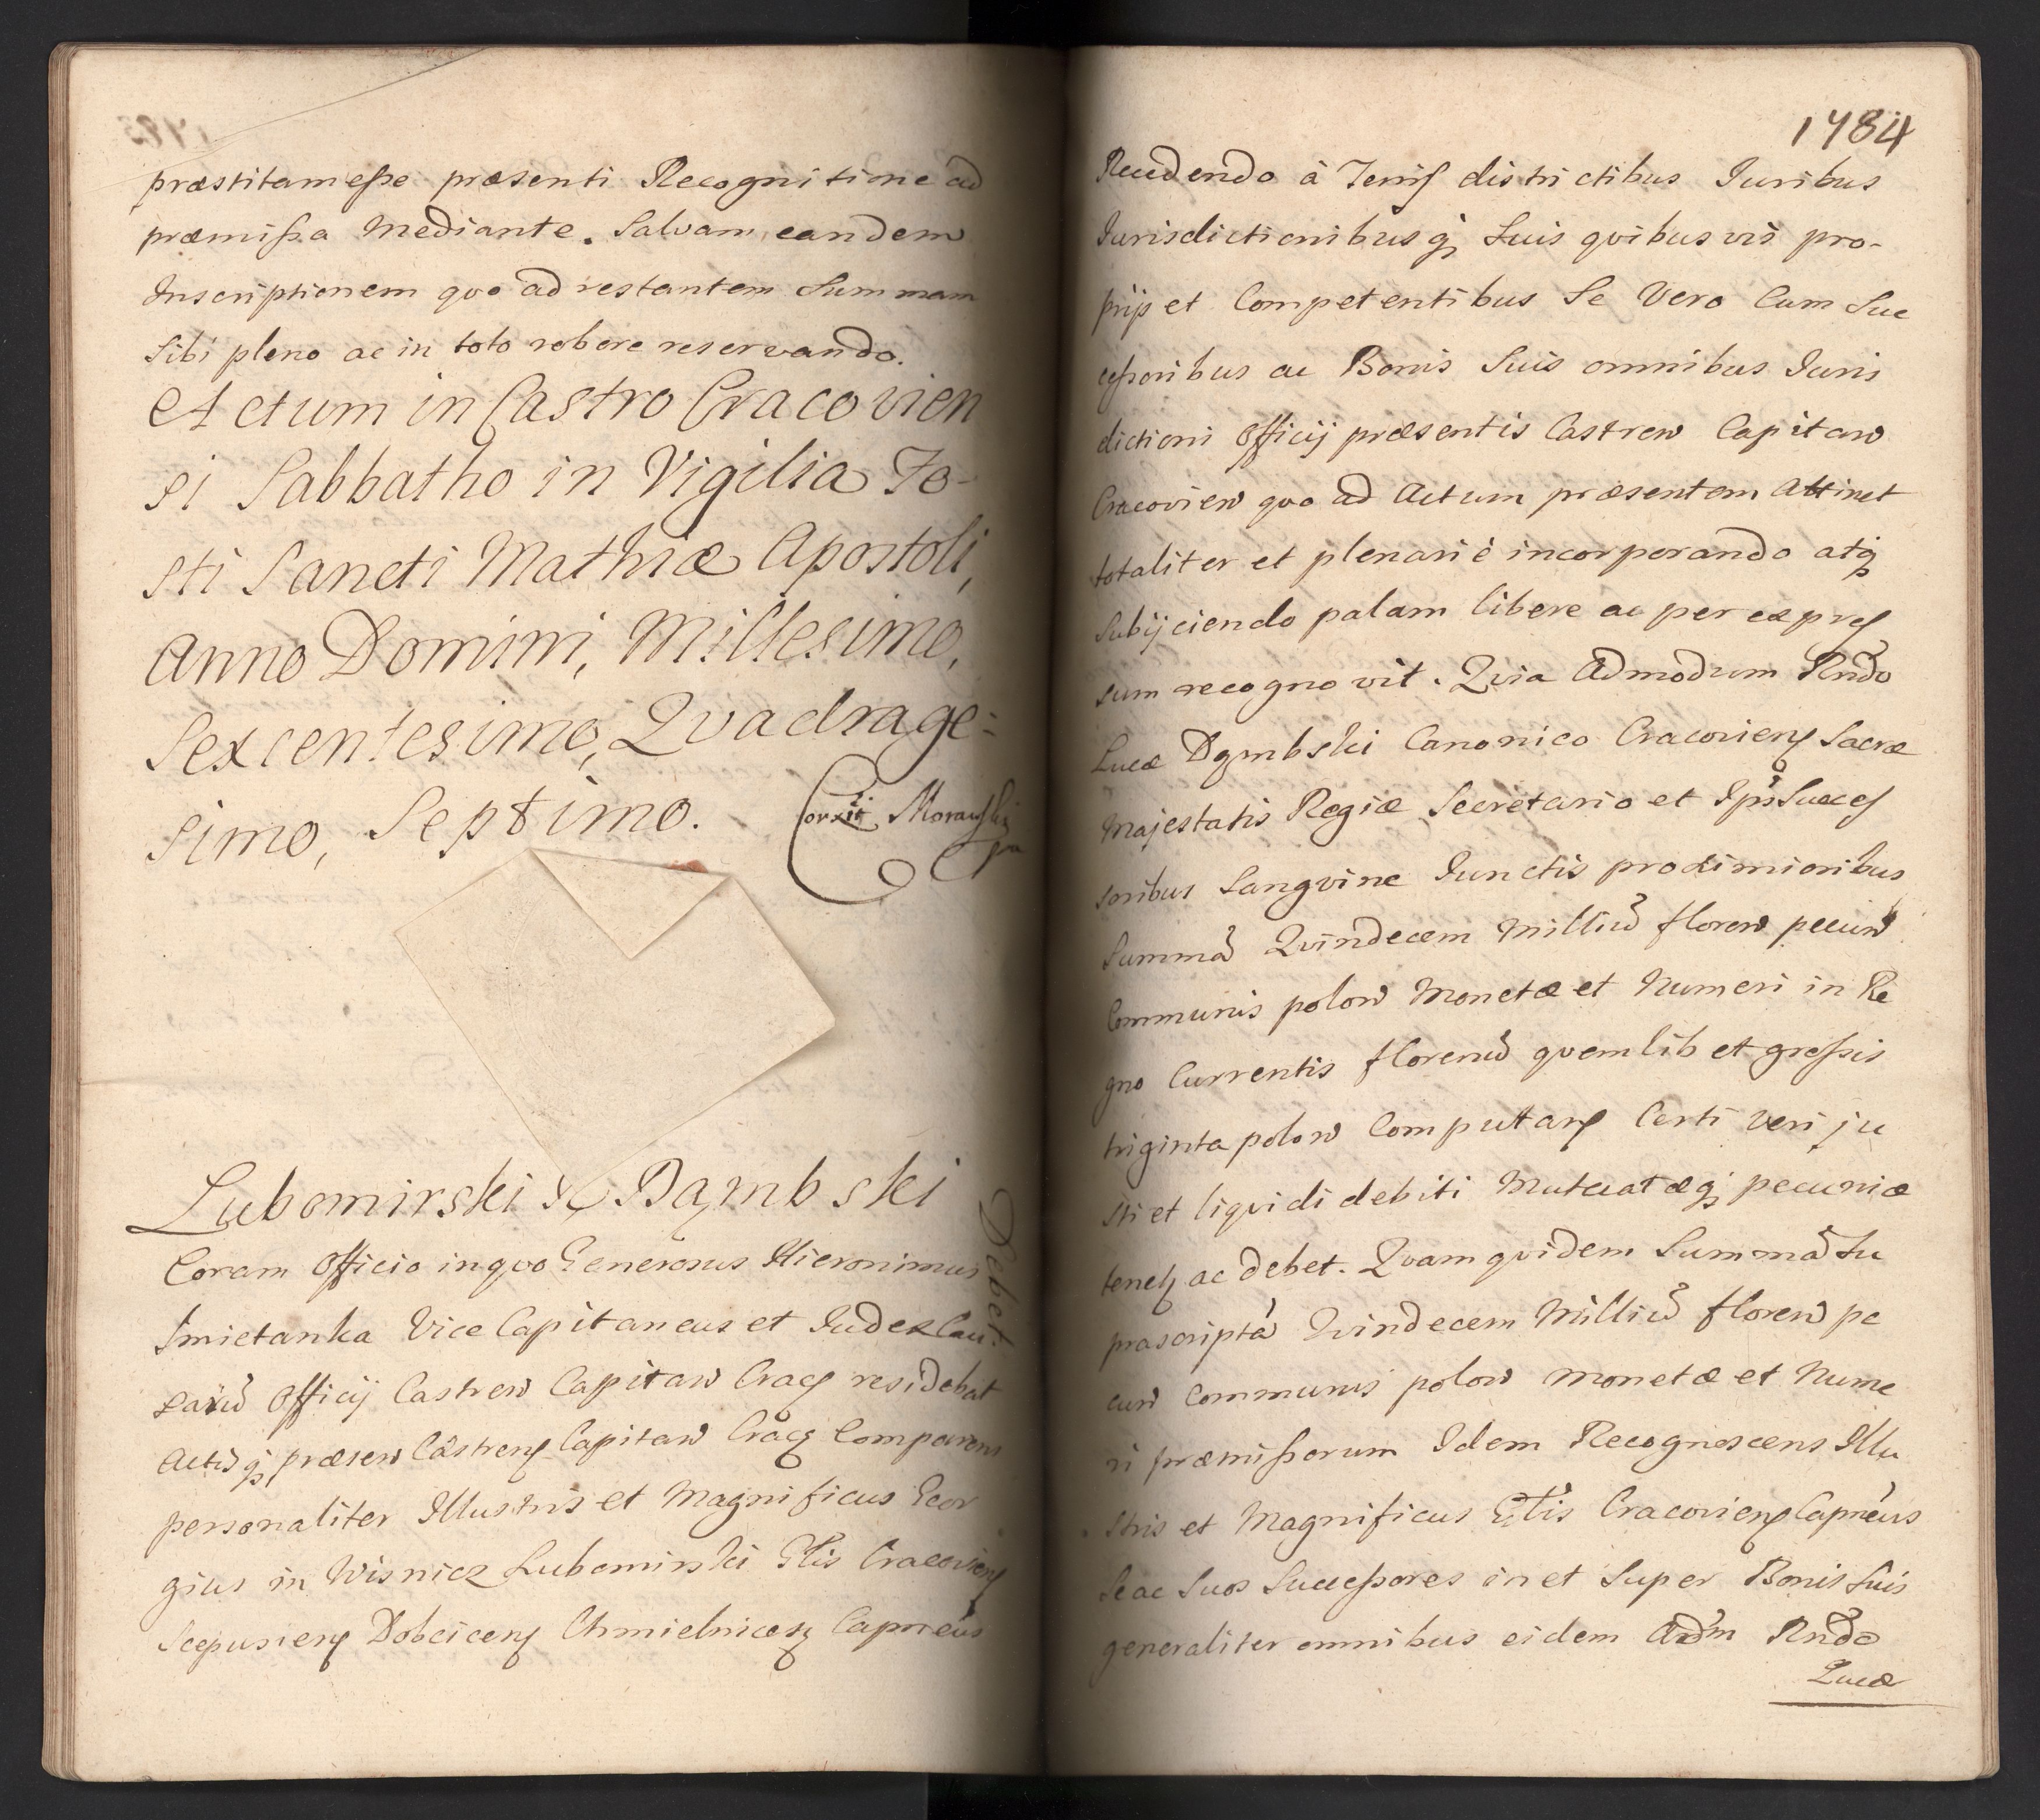 præstitam esse præsenti Recognitione ad
præmissa Mediante. Salvam eandem
Inscriptionem quo ad restantem Summam
sibi pleno ac in toto robore reservando.
Actum in Castro Cracovien
si Sabbatho in Vigilia Fe-
sti Sancti Mathiæ Apostoli,
Anno Domini, Millesimo,
Sexcentesimo, Quadrage=
simo, Septimo.
Correxit Morawski
Lubomirski & Dąmbski
Debet.
Coram Officio in quo Generosus Hieronimus
Smietanka Vice Capitaneus et Judex Cau-
sarũ Officij Castreñ Capitań Cracȝ residebat
Actisq; præseñ Castrenȝ Capitań Cracȝ Comparens
personaliter Illustris et Magnificus Geor
gius in Wisnicz Lubomirski Gñlis Cracovienȝ
Scepusienȝ Dobcicenȝ Chmielnicenȝ Capneus
1784
Recedendo à Terrisȝ districtibus Juribus
Jurisdictionibusq; Suis quibusvis pro-
prijs et Competentibus Se Vero Cum Suc
cessoribus ac Bonis Suis omnibus Juris
dictioni Officij præsentis Castreñ Capitań
Cracovień quo ad Actum præsentem Attinet
totaliter et plenariè incorporando atq;
Subijciendo palam libere ac per expresȝ
sum recognovit. Quia Admodum Rndo
Lucæ Dąmbski Canonico Cracovienȝ Sacræ
Majestatis Regiæ Secretario et Ipsȝ Succesȝ
soribus Sangvine Iunctis proximioribus
Summã Quindecem Milliũ floreń pecuń
Communis poloń Monetæ et Numeri in Re
gno Currentis florenũ quemlibet grossis
triginta poloń Computtanȝ Certi veri ju
sti et liquidi debiti Mutuatæq; pecuniæ
tenetȝ ac debet. Quam quidem Summã Su
prascriptã Quindecem Milliũ floreń pe
cuń communis poloń monetæ et Nume
ri præmissorum Idem Recognoscens Illu
stris et Magnificus Gñlis Cracovienȝ Capneus
Se ac Suos Successores in et Super Bonis Suis
generaliter omnibus eidem Adm Rndo
Lucæ